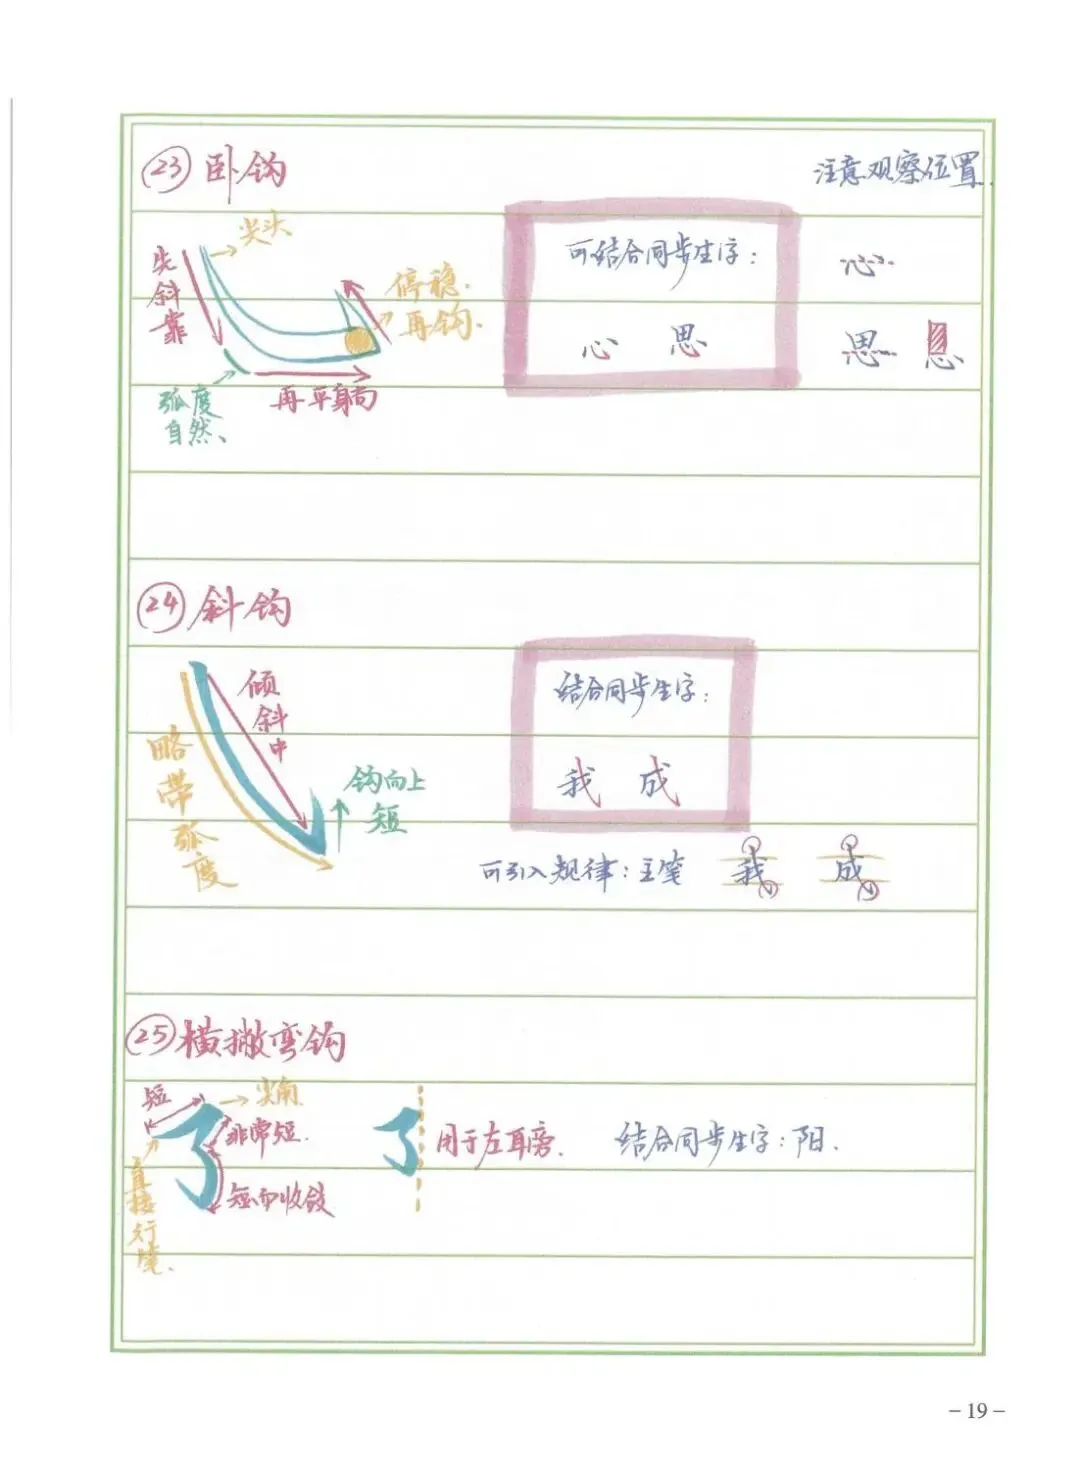 ㉓ 卧钩
注意观察位置.
尖头
先斜靠
停稳.
再钩.
弧度
自然、
再平躺向
可结合同步生字:
心 思
心
思 息
㉔ 斜钩
倾斜中
略带弧度
钩向上
短
结合同步生字:
我 成
可引入规律:主笔 我 成
㉕ 横撇弯钩
短
尖角
非常短.
直接行笔.
短而收敛
用于左耳旁. 结合同步生字:阳.
- 19 -